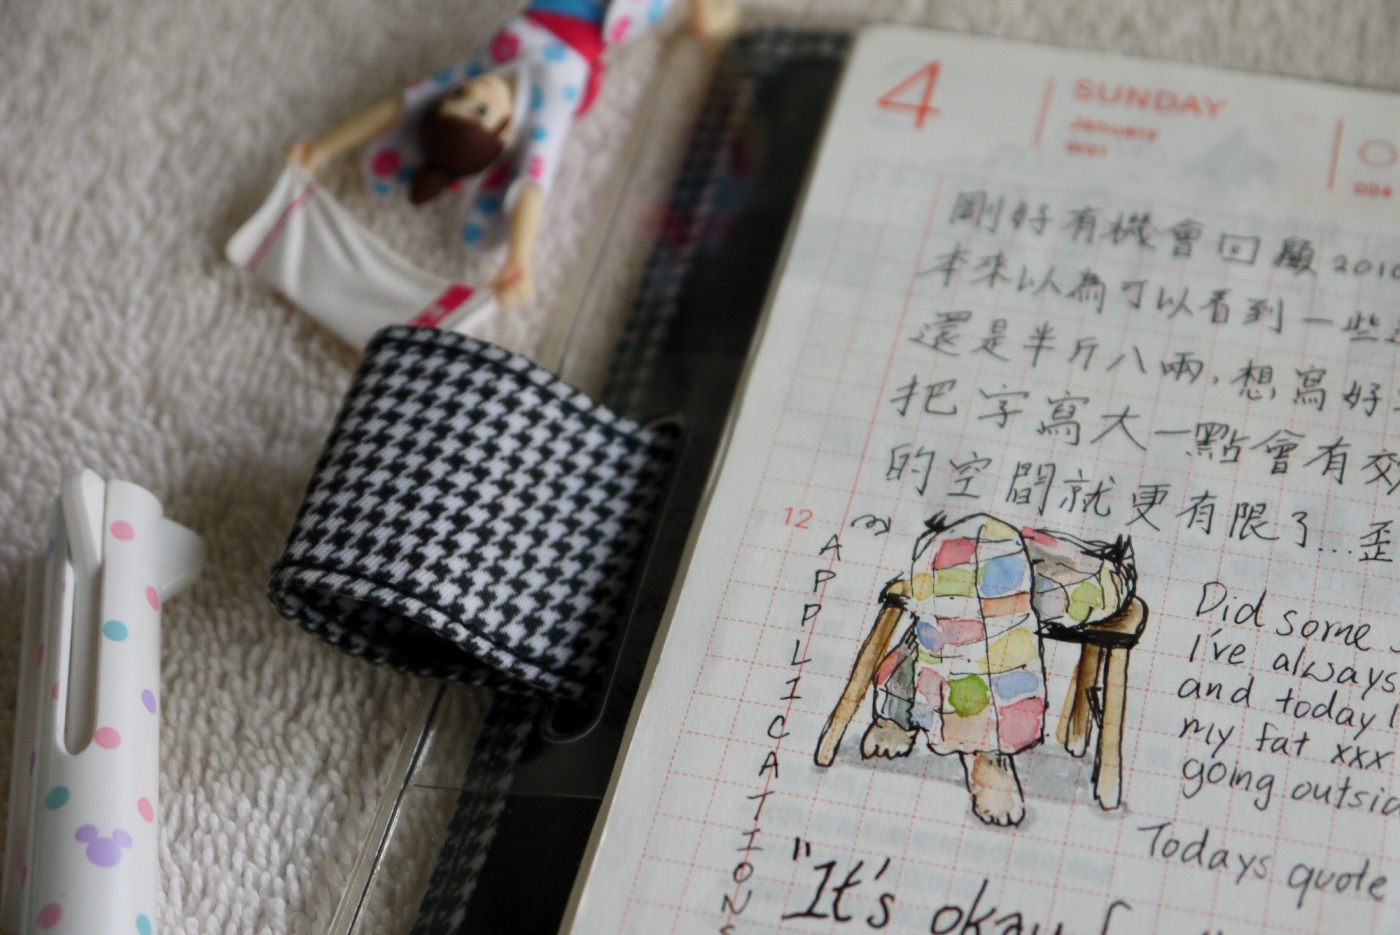 4
SUNDAY
January
W01
004
剛好有機會回顧201
本來以為可以看到一些
還是半斤八兩,想寫好
把字寫大一點會有
的空間就更有限了...歪
12
APPLICATIONS
Did some
I've always
and today I
my fat xxx
going outsid
Todays quote
"It's okay